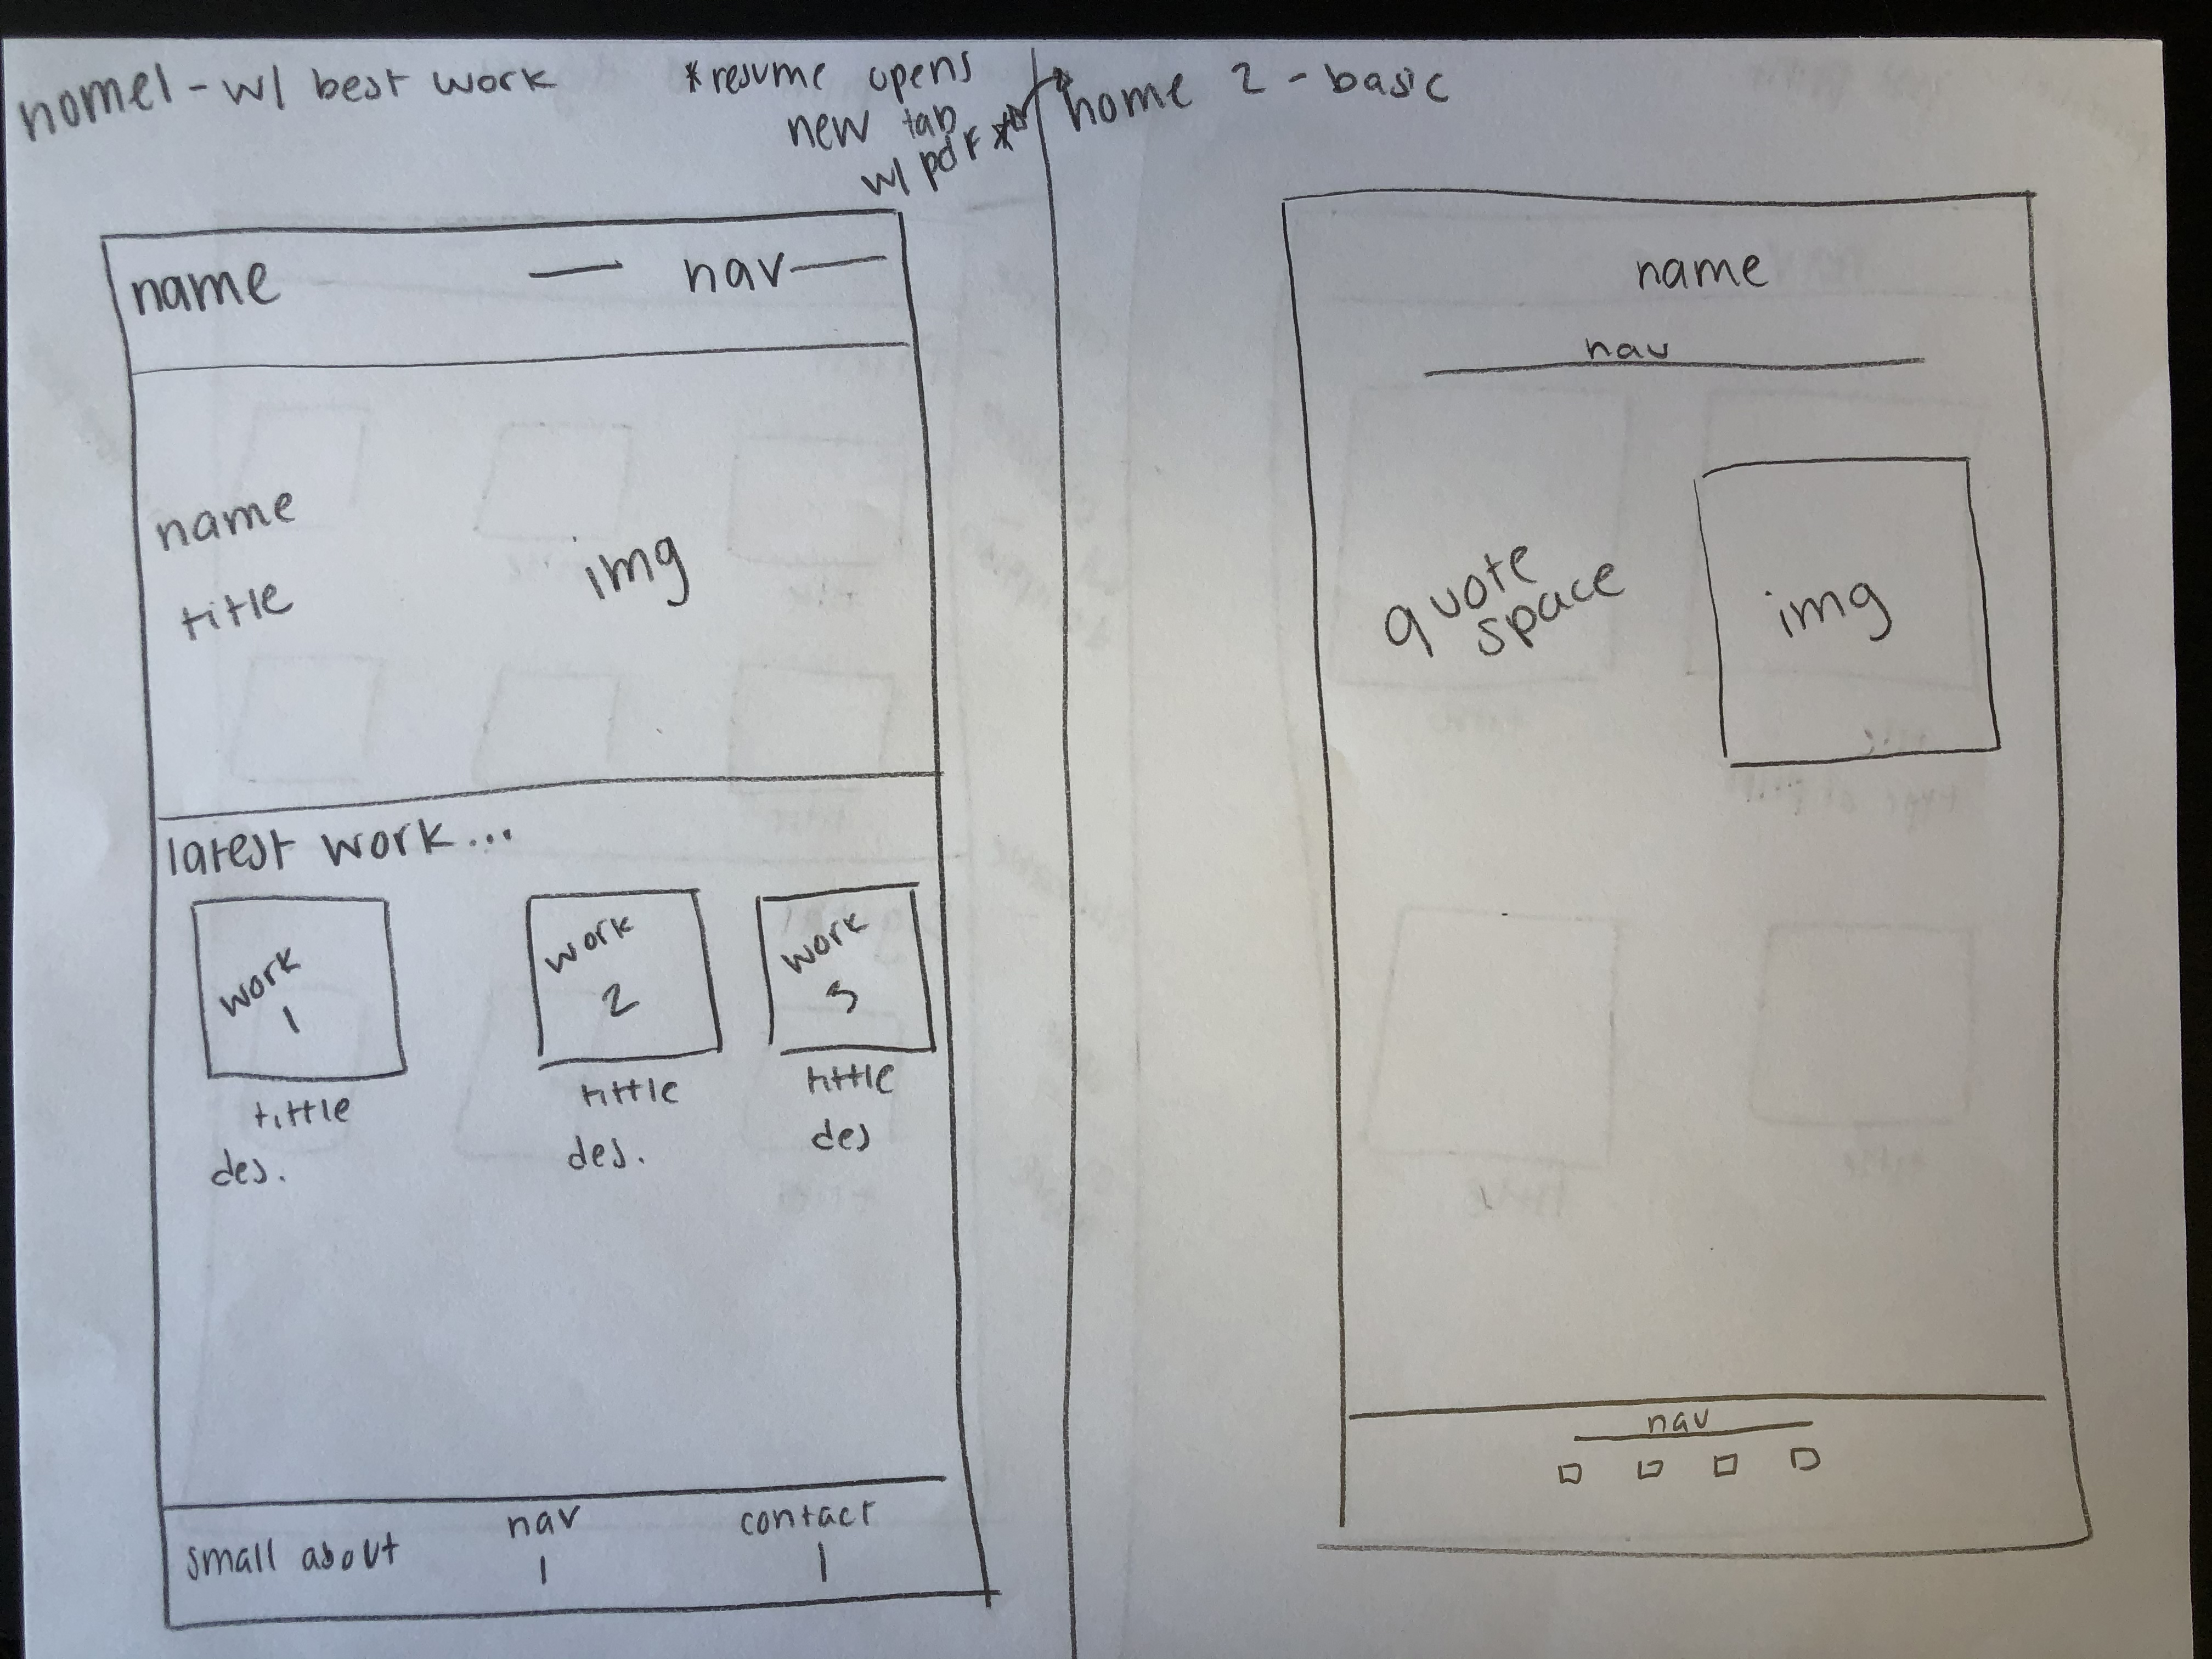 home1 - w/ best work
*resume opens
new tab
w/ pdf *
name
nav
name
title
img
latest work...
work
1
tittle
des.
work
2
tittle
des.
work
3
tittle
des
small about
nav
contact
home 2 - basic
name
nav
quote
space
img
nav